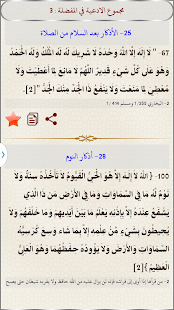 مجموع الادعية في المفضلة : 3
25- الأذكار بعد السلام من الصلاة
67- " لا إِلهَ إِلاَّ اللهُ وَحْدَهُ لا شَرِيكَ لَهُ لَهُ الْمُلْكُ وَلَهُ الْحَمْدُ
وَهُوَ عَلَى كُلِّ شَيءٍ قَدِيرٌ اللَّهُمَّ لا مَانِعَ لِمَا أَعْطَيْتَ وَلا
مُعْطِيَ لِمَا مَنَعْتَ وَلا يَنْفَعُ ذَا الْجَدِّ مِنْكَ الْجَدُّ "[2].
2- البخاري 255/1 ومسلم 414/1
28- أذكار النوم
100- { اللهُ لاَ إِلَهَ إِلاَّ هُوَ الْحَيُّ الْقَيُّومُ لاَ تَأْخُذُهُ سِنَةٌ وَلاَ
نَوْمٌ لَهُ مَا فِي السَّمَاوَاتِ وَمَا فِي الأَرْضِ مَن ذَا الَّذِي
يَشْفَعُ عِنْدَهُ إِلاَّ بِإِذْنِهِ يَعْلَمُ مَا بَيْنَ أَيْدِيهِمْ وَمَا خَلْفَهُمْ وَلاَ
يُحِيطُونَ بِشَيْءٍ مِّنْ عِلْمِهِ إِلاَّ بِمَا شَاءَ وَسِعَ كُرْسِيُّهُ
السَّمَاوَاتِ وَالأَرْضَ وَلاَ يَؤُودُهُ حِفْظُهُمَا وَهُوَ الْعَلِيُّ
الْعَظِيمُ }[2].
2- من قرأها إذا أوى إلى فراشه فإنه لن يزال عليه من الله حافظ ولا يقربه شيطان حتى يصبح